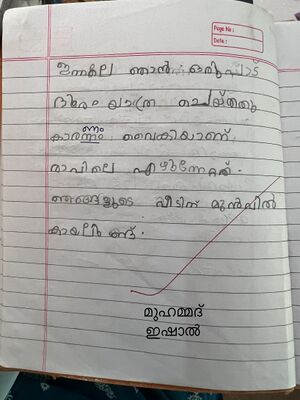 Page No :
Date :
ഇന്നലെ ഞാൻ ഒരുപാട്
ദൂരം യാത്ര ചെയ്തതു
ണം
കാരന്നം വൈകിയാണ്
രാവിലെ എഴുന്നേറ്റത്.
ഞങ്ങളുടെ വീടിന് മുൻപിൽ
കായലുണ്ട്.
മുഹമ്മദ്
ഇഷാൽ